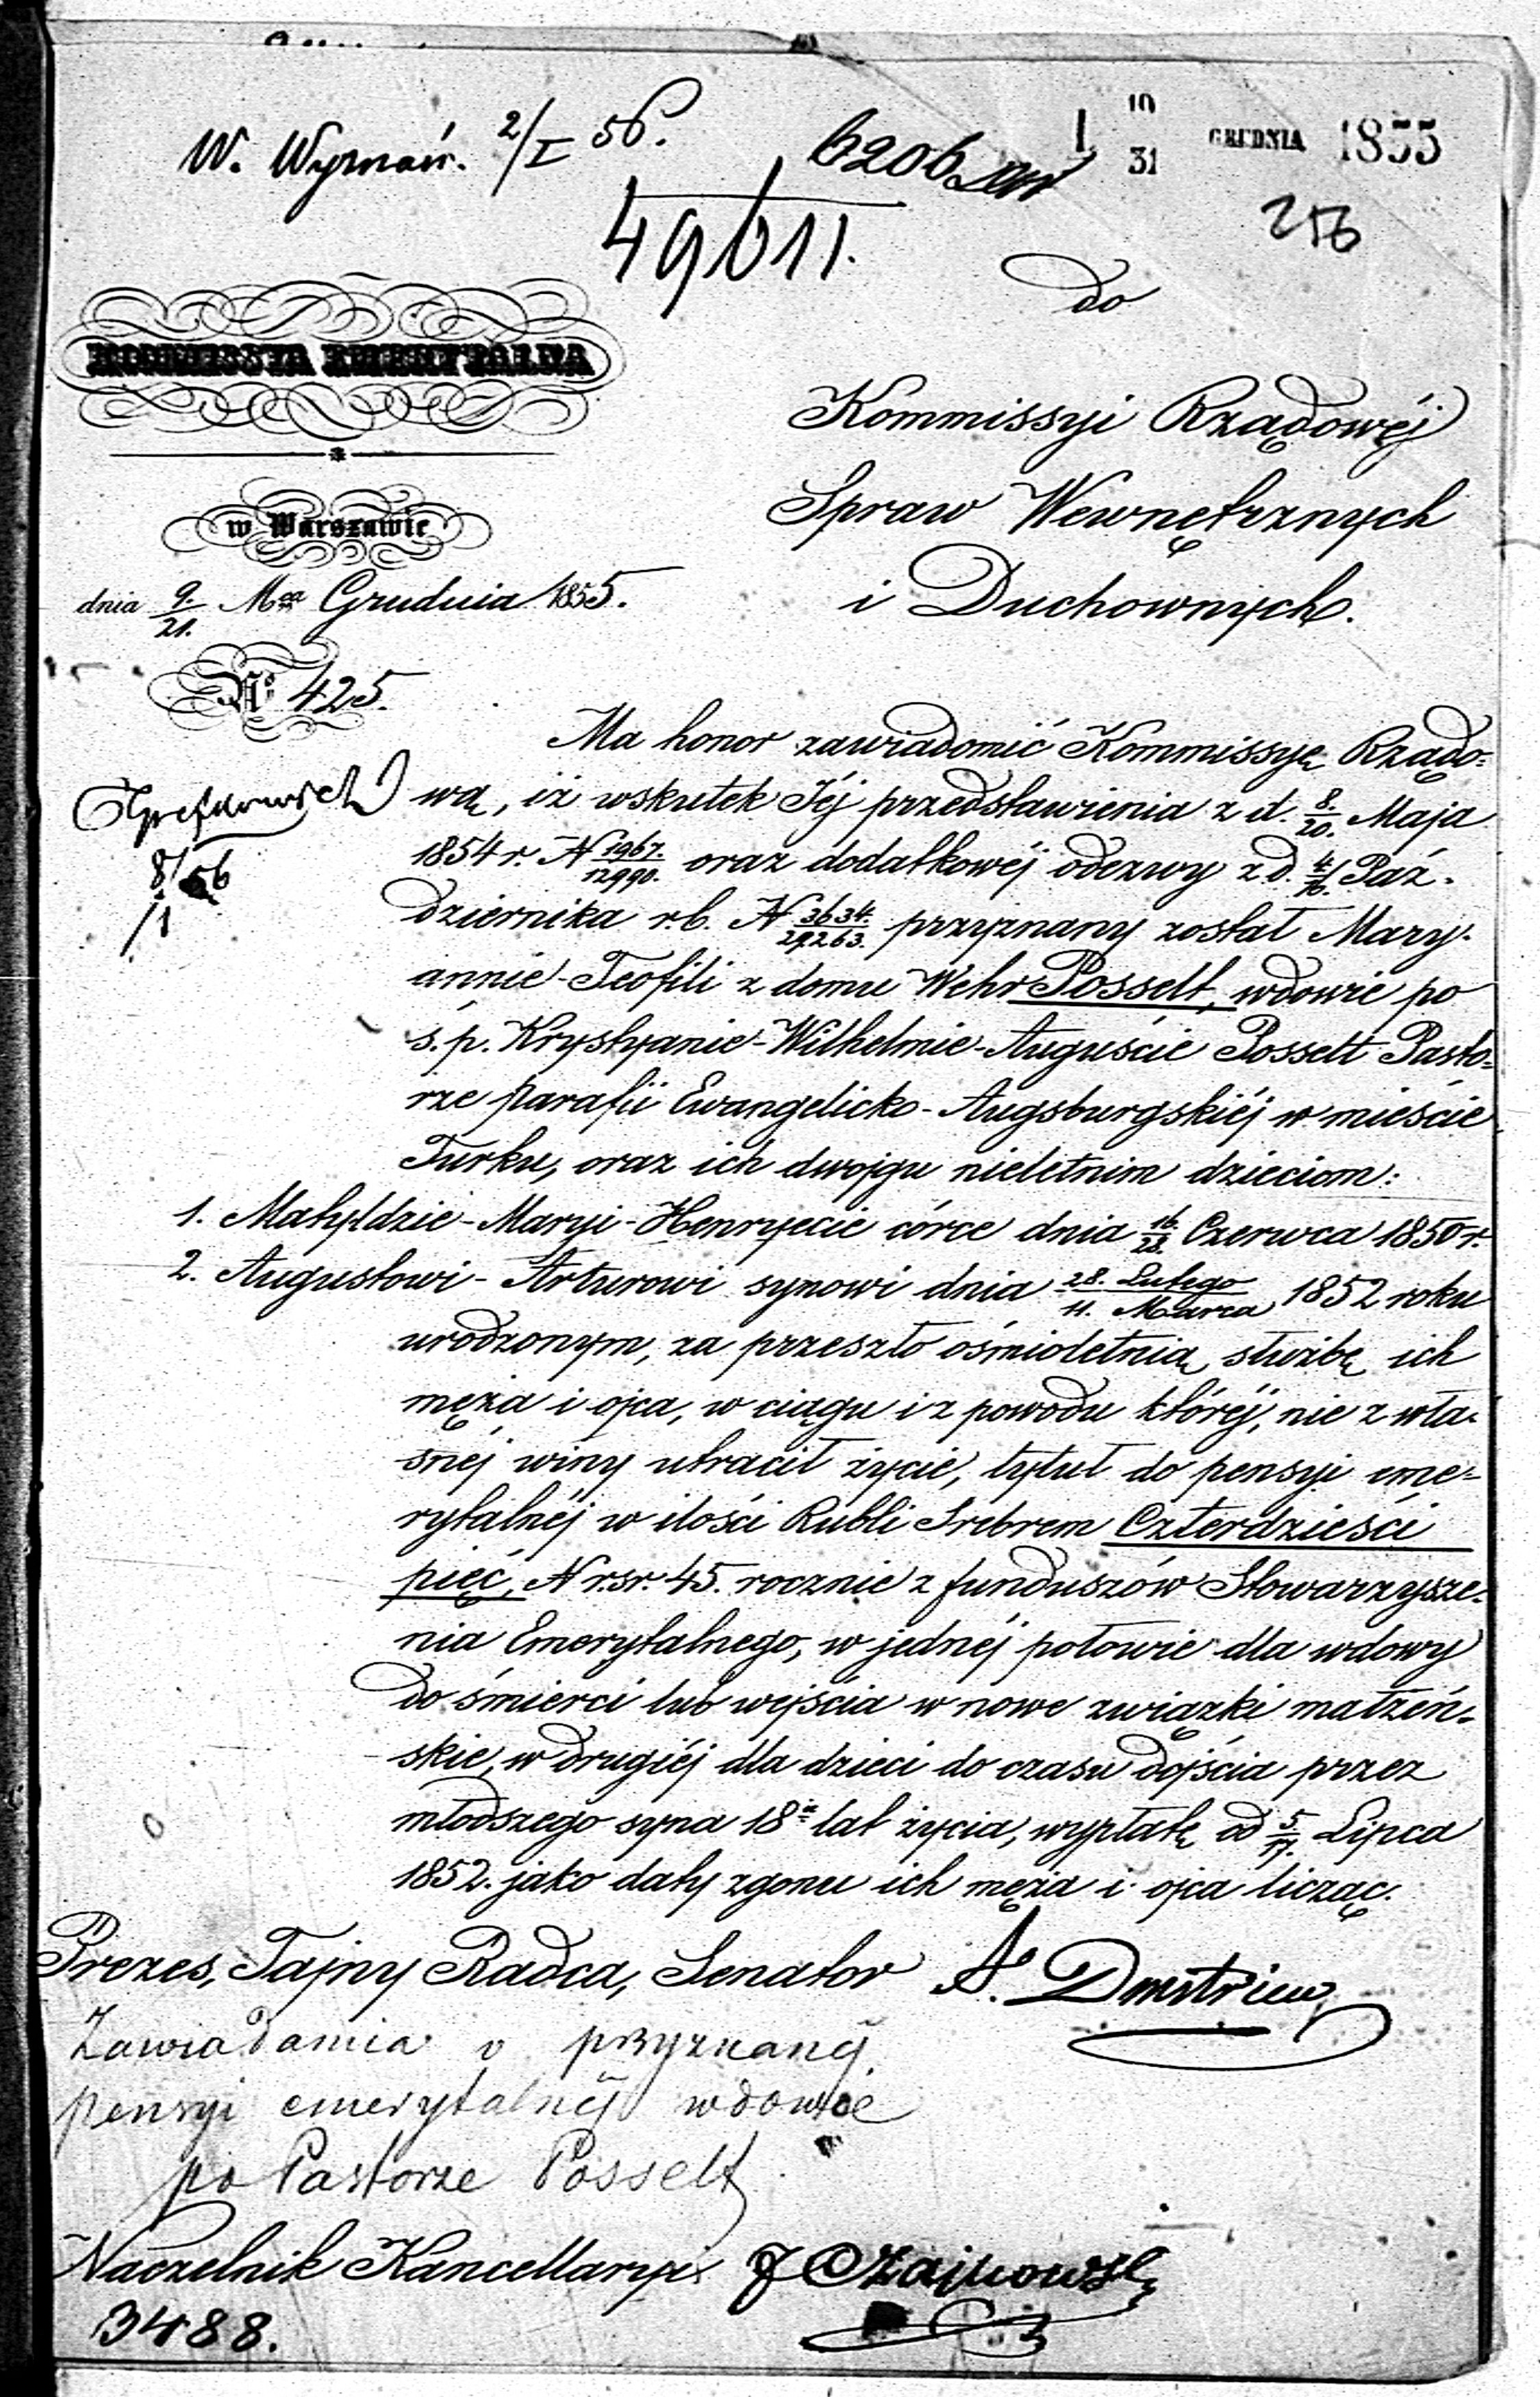 W. Wyznań. 2/I 56.
6206
49611.
10
31
GRUDNIA 1855
256
do
KOMMISSYA EMERYTALNA
Kommissyi Rządowéj
Spraw Wewnętrznych
i Duchownych.
w Warszawie
dnia 9/21. Mca Grudnia 1855.
No 425.
8/56
/1
Ma honor zawiadomić Kommissyę Rządo=
wą, iż wskutek Jéj przedstawienia z d. 8./20. Maja
1854 r. N 1967./12990. oraz dodatkowéj odezwy z d. 4/16. Paź-
dziernika r.b. N 3634./29263. przyznany został Mary-
annie-Teofili z domu Wehr Posselt, wdowie po
ś.p. Krystyanie-Wilhelmie-Auguście Posselt Pasto=
rze parafii Ewangelicko-Augsburgskiéj w mieście
Turku, oraz ich dwojgu nieletnim dzieciom:
1. Matyldzie-Maryi-Henryecie córce dnia 16./28. Czerwca 1850 r.
2. Augustowi-Arturowi synowi dnia 28. Lutego/11. Marca 1852 roku
urodzonym, za przeszło ośmioletnią służbę ich
męża i ojca, w ciągu i z powodu któréj, nie z wła-
snéj winy utracił życie, tytuł do pensyi eme=
rytalnéj w ilości Rubli Srebrem Czterdzieści
pięć, N rsr. 45. rocznie z funduszów Stowarzysze-
nia Emerytalnego, w jednéj połowie dla wdowy
do śmierci lub wejścia w nowe związki małżeń-
skie, w drugiéj dla dzieci do czasu dojścia przez
młodszego syna 18u lat życia, wypłatę od 5/17. Lipca
1852. jako daty zgonu ich męża i ojca licząc.
Prezes, Tajny Radca, Senator A. Dmitriew
Zawiadamia o przyznanéj
pensyi emerytalnéj wdowie
po Pastorze Posselt
Naczelnik Kancellaryi J Czajkowski
3488.